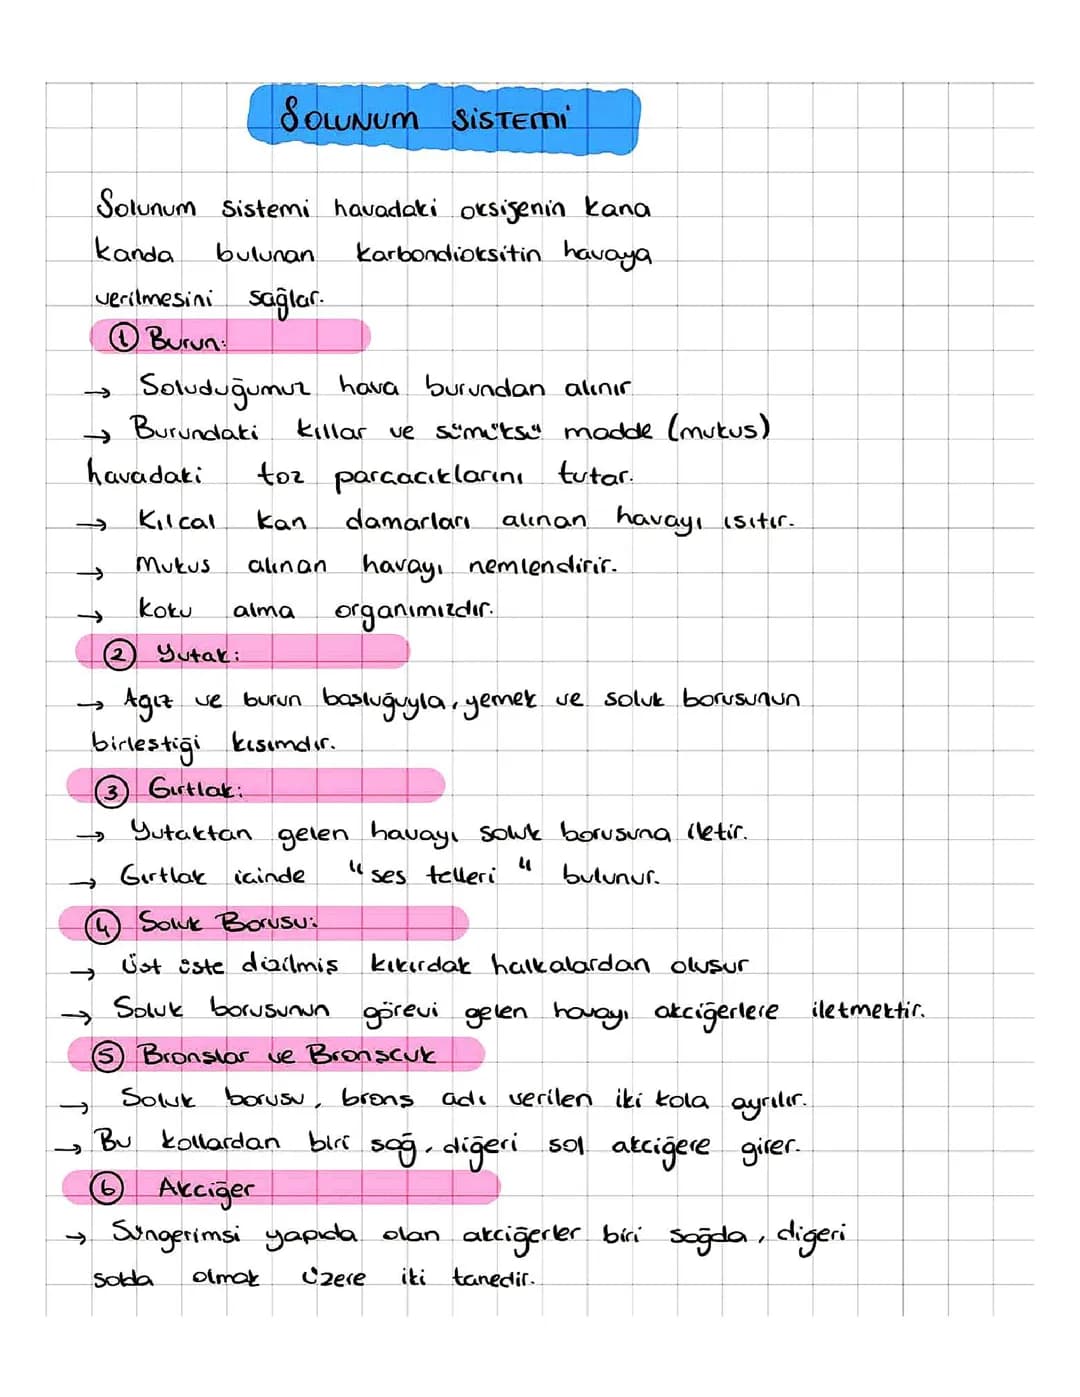 SOLUNUM SİSTEMİ
Solunum sistemi havadaki oksijenin kana
kanda bulunan karbondioksitin havaya
verilmesini sağlar.
① Burun:
→ Soluduğumuz hava burundan alınır
→ Burundaki kıllar ve sümüksü madde (mukus)
havadaki toz parcacıklarını tutar.
→ Kılcal kan damarları alınan havayı ısıtır.
→ Mukus alınan havayı nemlendirir.
→ Koku alma organımızdır.
② Yutak:
→ Ağız ve burun bosluğuyla, yemek ve soluk borusunun
birlestiği kısımdır.
③ Gırtlak:
→ Yutaktan gelen havayı soluk borusuna iletir.
→ Gırtlak icinde "ses telleri" bulunur.
④ Soluk Borusu:
→ Üst üste dizilmiş kıkırdak halkalardan olusur
→ Soluk borusunun görevi gelen havayı akciğerlere iletmektir.
⑤ Bronslar ve Bronscuk
→ Soluk borusu, brons adı verilen iki kola ayrılır.
→ Bu kollardan biri sağ, diğeri sol akciğere girer.
⑥ Akciğer
→ Süngerimsi yapıda olan akciğerler biri sağda, digeri
solda olmak üzere iki tanedir.